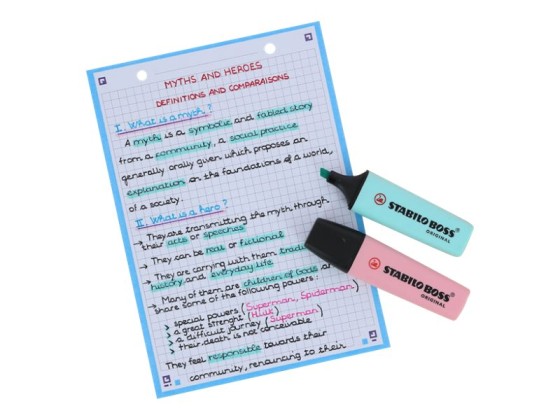 MYTHS AND HEROES
DEFINITIONS AND COMPARAISONS
I. What is a myth ?
A myth is a symbolic and fabled story
from a community, a social practice
generally orally given which proposes an
explanation on the foundations of a world,
of a society.
II. What is a hero ?
→ They are transmitting the myth through
their acts or speeches
→ They can be real or fictional
→ They are carrying with them
history and everyday life
→ Many of them are children of Gods or
share some of the following powers :
> special powers (Superman, Spiderman)
> a great strenght (Hulk)
> a difficult journey (Superman)
> their death is not conceivable
They feel responsible towards their
community, renouncing to their
STABILO BOSS
ORIGINAL
STABILO BOSS
ORIGINAL